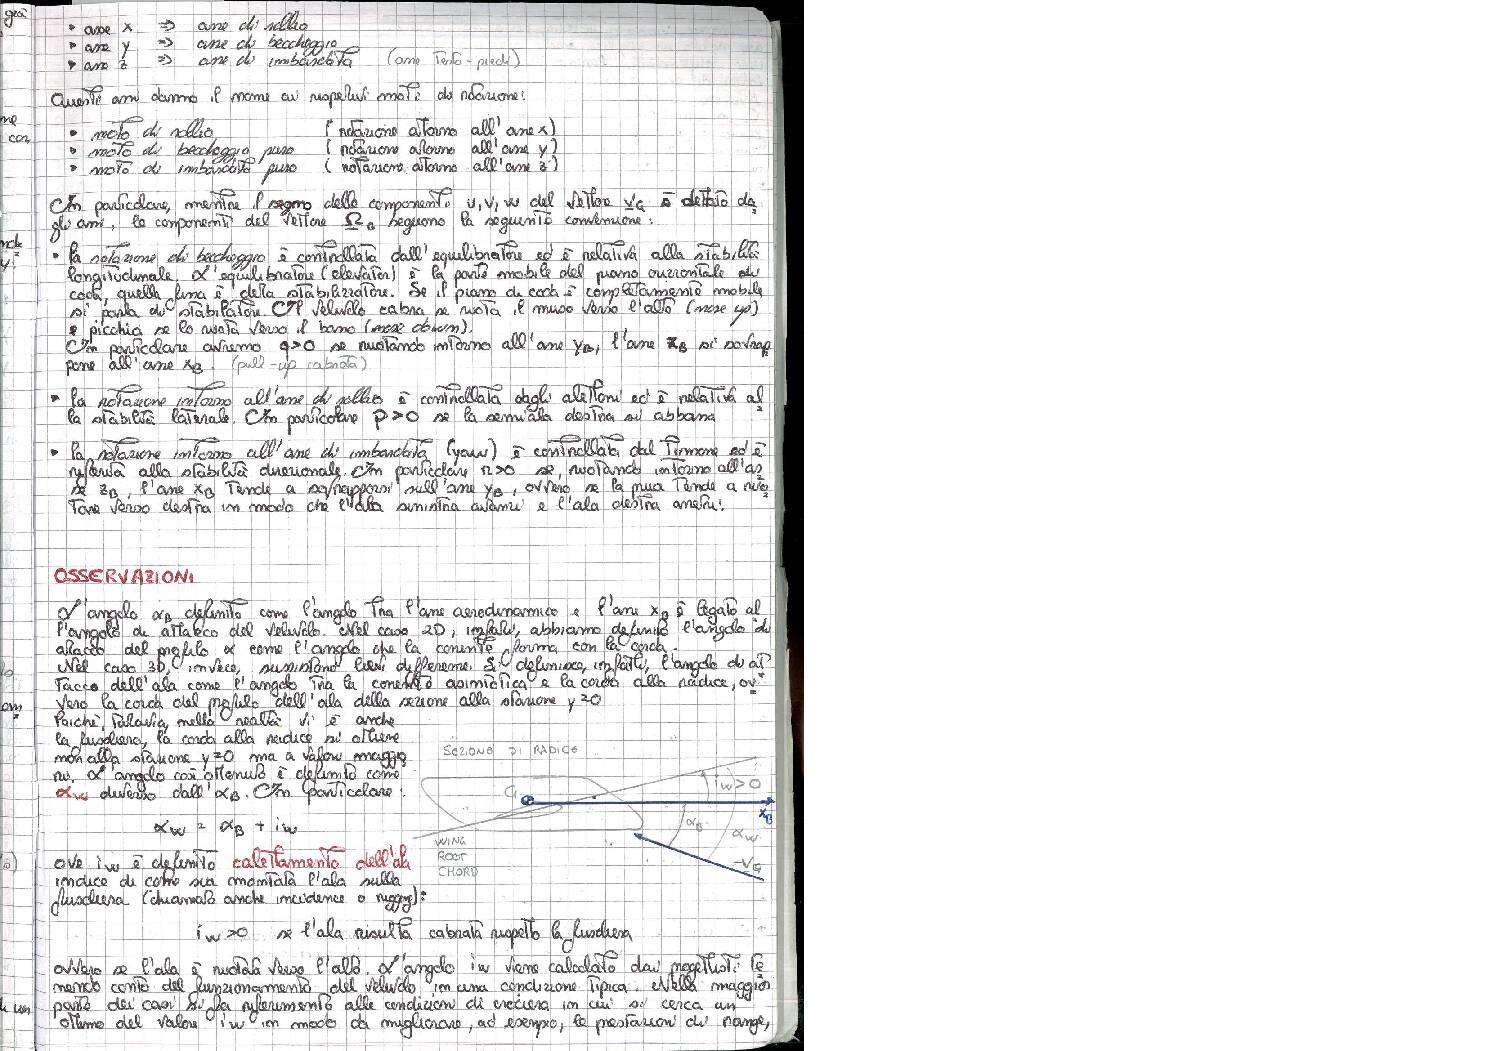 • asse x ⇒ asse di rollio
• asse y ⇒ asse di beccheggio
• asse z ⇒ asse di imbardata (asse testa-piedi)
Questi assi danno il nome ai rispettivi moti di rotazione:
• moto di rollio (rotazione attorno all'asse x)
• moto di beccheggio puro (rotazione attorno all'asse y)
• moto di imbardata puro (rotazione attorno all'asse z)
In particolare, mentre il segno delle componenti u, v, w del vettore V_G è dettato da
gli assi, le componenti del vettore Ω_B seguono la seguente convenzione:
• la rotazione di beccheggio è controllata dall'equilibratore ed è relativa alla stabilità
longitudinale. L'equilibratore (elevator) è la parte mobile del piano orizzontale di
coda, quella fissa è detta stabilizzatore. Se il piano di coda è completamente mobile
si parla di stabilatore. Il velivolo cabra se ruota il muso verso l'alto (nose up)
e picchia se lo ruota verso il basso (nose down).
In particolare avremo q>0 se ruotando intorno all'asse y_B, l'asse z_B si sovrap
pone all'asse x_B. (pull-up cabrata)
• la rotazione intorno all'asse di rollio è controllata dagli alettoni ed è relativa al
la stabilità laterale. In particolare p>0 se la semiala destra si abbassa
• la rotazione intorno all'asse di imbardata (yaw) è controllata dal timone ed è
riferita alla stabilità direzionale. In particolare r>0 se, ruotando intorno all'as
se z_B, l'asse x_B tende a sovrapporsi sull'asse y_B, ovvero se la prua tende a ruo
tare verso destra in modo che l'ala sinistra avanzi e l'ala destra arretri.
OSSERVAZIONI
L'angolo α_B definito come l'angolo tra l'asse aerodinamico e l'asse x_B è legato al
l'angolo di attacco del velivolo. Nel caso 2D, infatti, abbiamo definito l'angolo di
attacco del profilo α come l'angolo che la corrente forma con la corda.
Nel caso 3D, invece, sussistono lievi differenze. Si definisce, infatti, l'angolo di at
tacco dell'ala come l'angolo tra la corrente asintotica e la corda alla radice, ov
vero la corda del profilo dell'ala della sezione alla stazione y=0
Poiché, tuttavia, nella realtà vi è anche
la fusoliera, la corda alla radice si ottiene
non alla stazione y=0 ma a valori maggio
ri. L'angolo così ottenuto è definito come
α_W diverso dall'α_B. In particolare:
α_W = α_B + i_W
SEZIONE DI RADICE
G
i_W>0
x_B
α_B
α_W
-V_G
WING
ROOT
CHORD
ove i_W è definito calettamento dell'ala
indice di come sia montata l'ala sulla
fusoliera (chiamato anche incidence o rigging):
i_W>0 se l'ala risulta cabrata rispetto la fusoliera
ovvero se l'ala è ruotata verso l'alto. L'angolo i_W viene calcolato dai progettisti te
nendo conto del funzionamento del velivolo in una condizione tipica. Nella maggior
parte dei casi si fa riferimento alle condizioni di crociera in cui si cerca un
ottimo del valore i_W in modo da migliorare, ad esempio, le prestazioni di range,